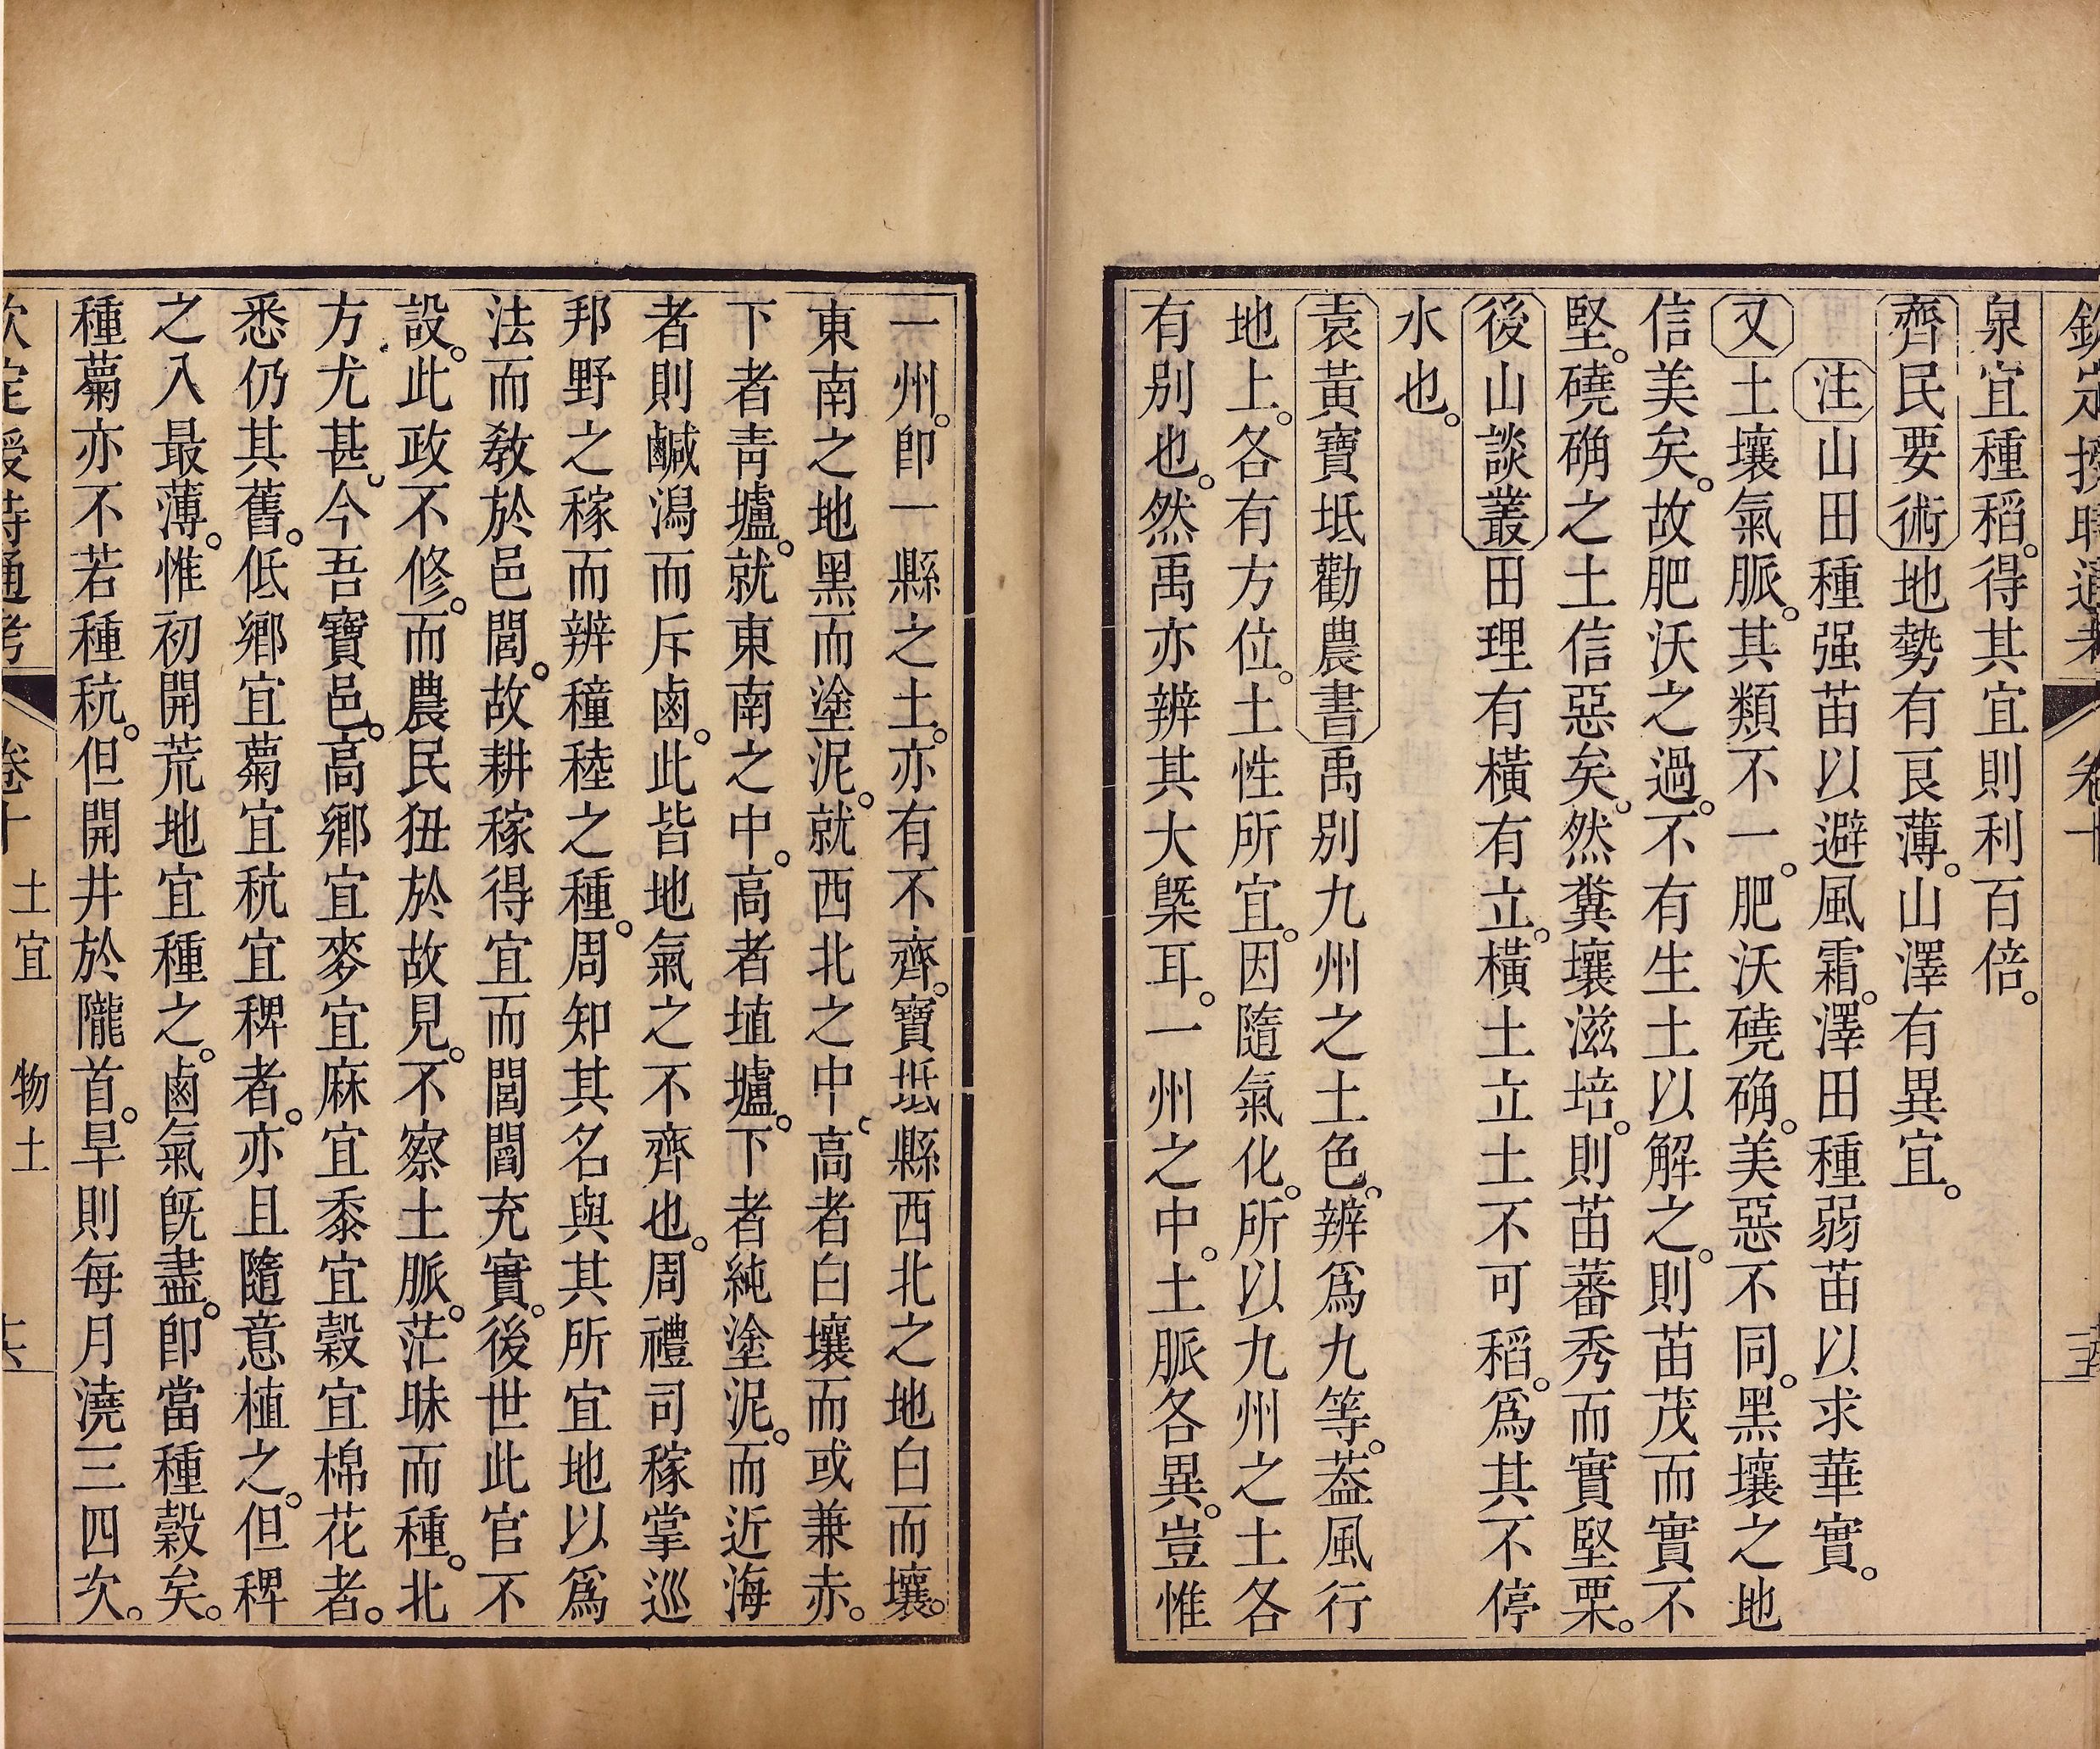 欽定授時通考 卷十
泉宜種稻。得其宜則利百倍。
齊民要術地勢有良薄。山澤有異宜。
注山田種强苗以避風霜。澤田種弱苗以求華實。
又土壤氣脈。其類不一。肥沃磽确。美惡不同。黑壤之地
信美矣。故肥沃之過。不有生土以解之。則苗茂而實不
堅。磽确之土信惡矣。然糞壤滋培。則苗蕃秀而實堅栗。
後山談叢田理有橫有立。橫土立土不可稻。爲其不停
水也。
袁黃寶坻勸農書禹别九州之土色。辨爲九等。葢風行
地上。各有方位。土性所宜。因隨氣化。所以九州之土各
有別也。然禹亦辨其大槩耳。一州之中。土脈各異。豈惟
一州。卽一縣之土。亦有不齊。寶坻縣西北之地白而壤。
東南之地黑而塗泥。就西北之中。高者白壤而或兼赤。
下者靑壚。就東南之中。高者埴壚。下者純塗泥。而近海
者則鹹潟而斥鹵。此皆地氣之不齊也。周禮司稼掌巡
邦野之稼而辨穜稑之種。周知其名與其所宜地以爲
法而敎於邑閭。故耕稼得宜而閭閻充實。後世此官不
設。此政不修。而農民狃於故見。不察土脈。茫昧而種。北
方尤甚。今吾寶邑。高鄉宜麥宜麻宜黍宜穀宜棉花者。
悉仍其舊。低鄉宜薥宜秔宜稗者。亦且隨意植之。但稗
之入最薄。惟初開荒地宜種之。鹵氣旣盡。卽當種穀矣。
種薥亦不若種秔。但開井於隴首。旱則每月澆三四次。
欽定授時通考 卷十 土宜 物土 六